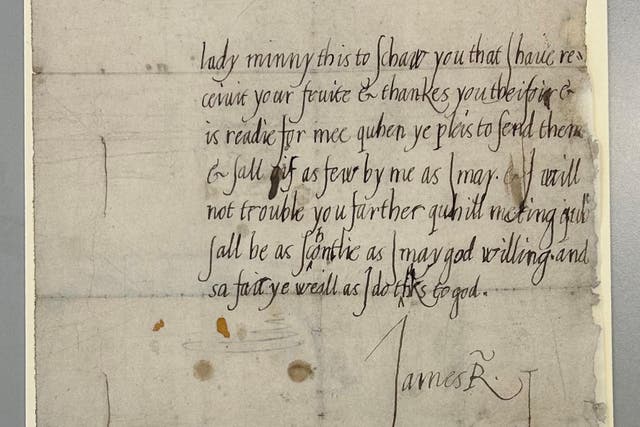 lady minny this to schaw you that I haue re-
ceiuit your fruite & thankes you theifoir &
is readie for mee quhen ye pleis to send them
& sall gif as few by me as I may. & I will
not trouble you farther quhill meting quh
sall be as schortlie as I may god willing. and
sa fair ye weill as I do thks to god.
James R.